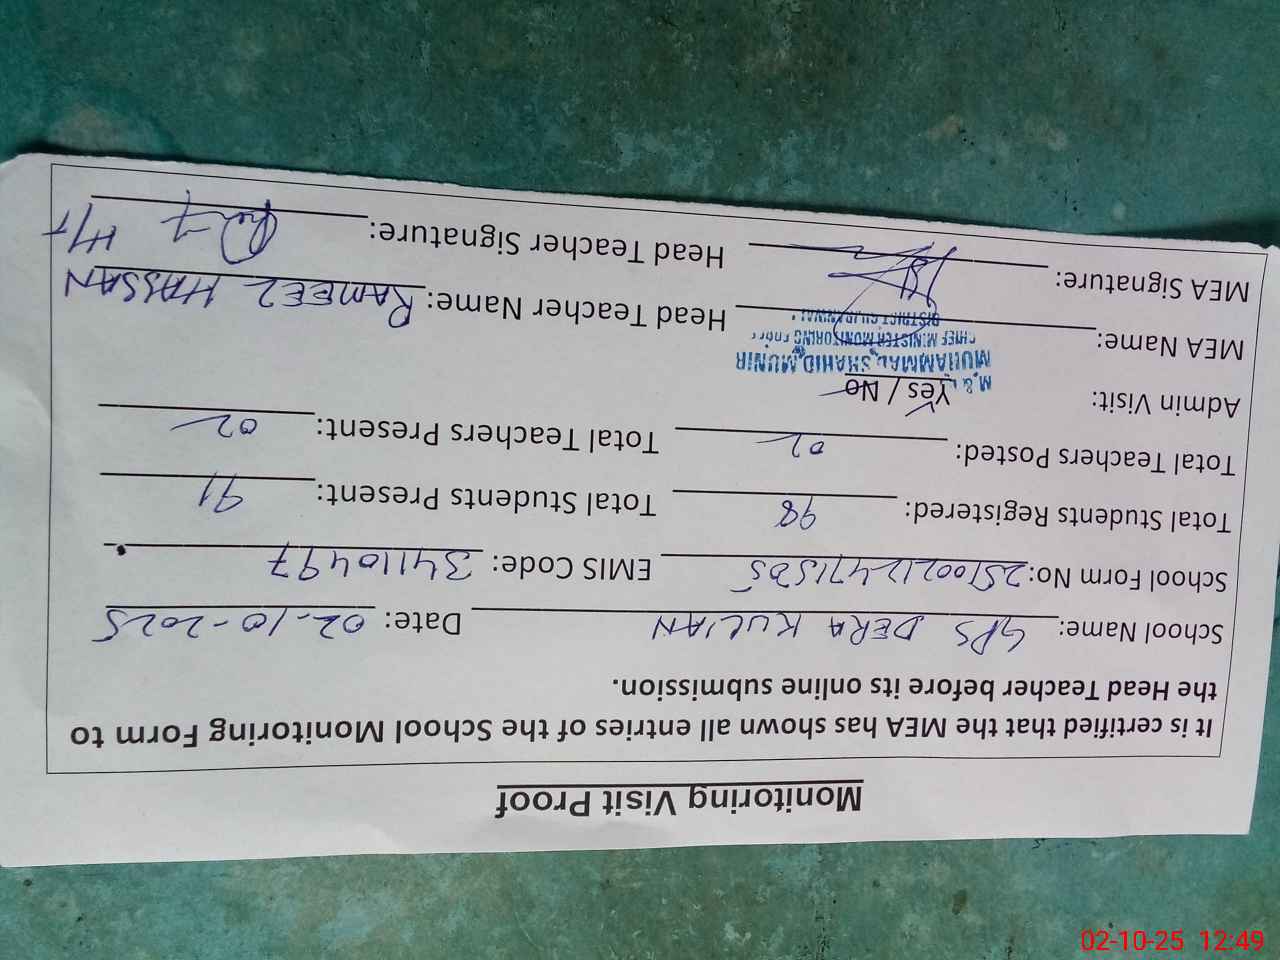 Monitoring Visit Proof
It is certified that the MEA has shown all entries of the School Monitoring Form to
the Head Teacher before its online submission.
School Name: GPS DERA KULIAN Date: 02-10-2025
School Form No: EMIS Code: 34110497
Total Students Registered: 98 Total Students Present: 91
Total Teachers Posted: 02 Total Teachers Present: 02
Admin Visit: Yes / No
MUHAMMAD SHAHID MUNIR
CHIEF MINISTER MONITORING FORCE
DISTRICT GUJRANWALA
MEA Name: Head Teacher Name: RAMEEZ HASSAN
MEA Signature: Head Teacher Signature: H/T
02-10-25 12:49